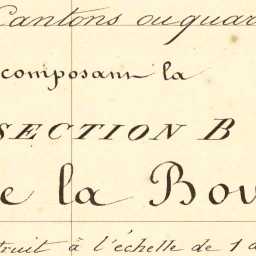 Cantons ou quar
composant la
SECTION B
e la Bou
truit à l'échelle de 1 d